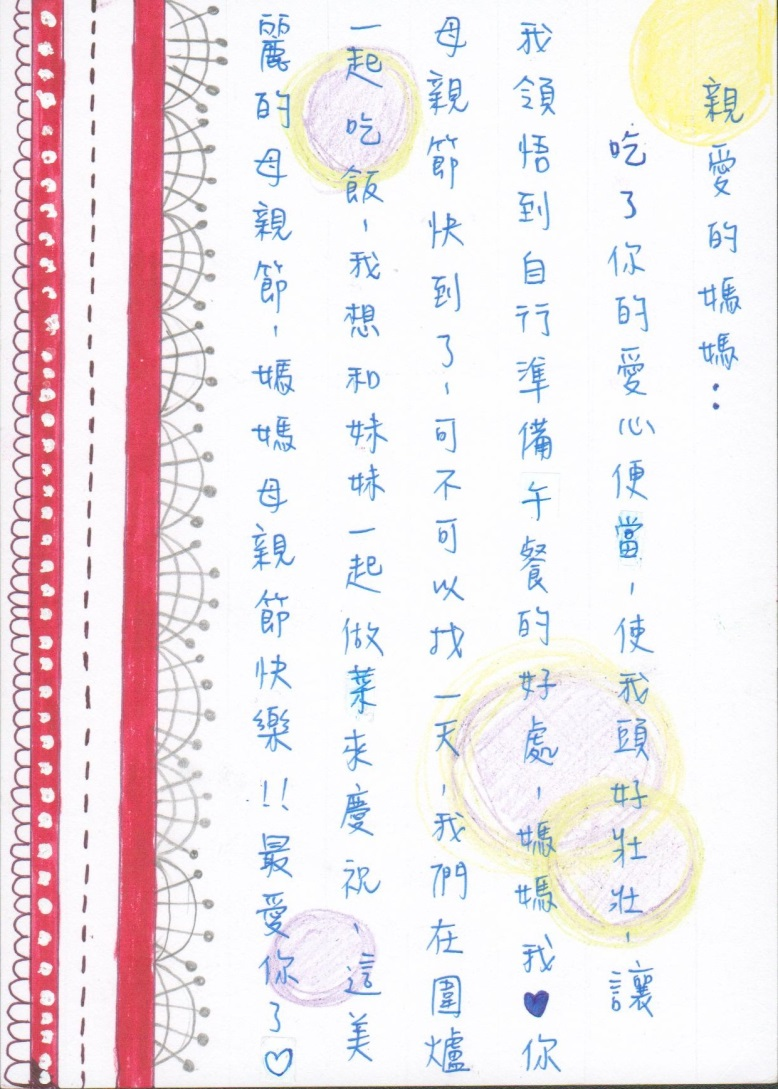 親愛的媽媽：
吃了你的愛心便當，使我頭好壯壯，讓
我領悟到自行準備午餐的好處，媽媽我♥你
母親節快到了，可不可以找一天，我們在圍爐
一起吃飯，我想和妹妹一起做菜來慶祝、這美
麗的母親節，媽媽母親節快樂!!最愛你了♡